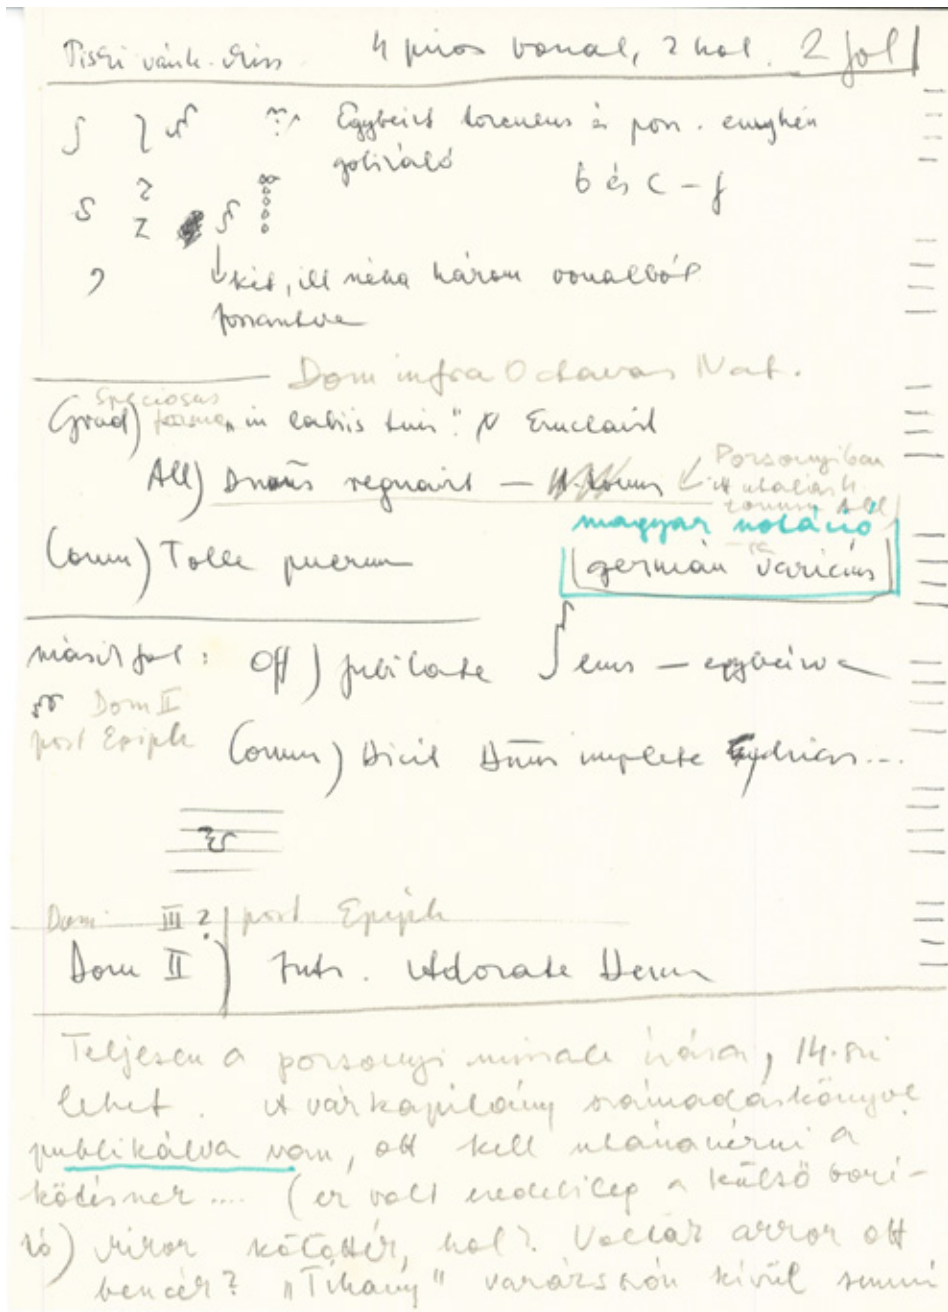 4 piros vonal, 2 hol. 2 fol
Egybeírt torculus és
gotizáló
b és c – f
két, ill néha három vonalból
Dom infra Octavas Nat.
Speciosus
Grad) forma „in labiis tuis" V Eructavit
All) Dominus regnavit –
Pozsonyiban
magyar notáció
Comm) Tolle puerum
germán variáns
másik fol: Off) Jubilate – egybeírva
Dom II
post Epiph
Comm) Dicit Dnus implete hydrias...
Dom III? post Epiph
Dom II) Intr. Adorate Deum
Teljesen a pozsonyi missale írása, 14. szi
lehet. A várkapitány számadáskönyve
publikálva van, ott kell utánanézni a
kötésnek .... (ez volt eredetileg a külső borí-
tó) mikor kötötték, hol? Voltak akkor ott
bencék? „Tihany" varázsszón kívül semmi